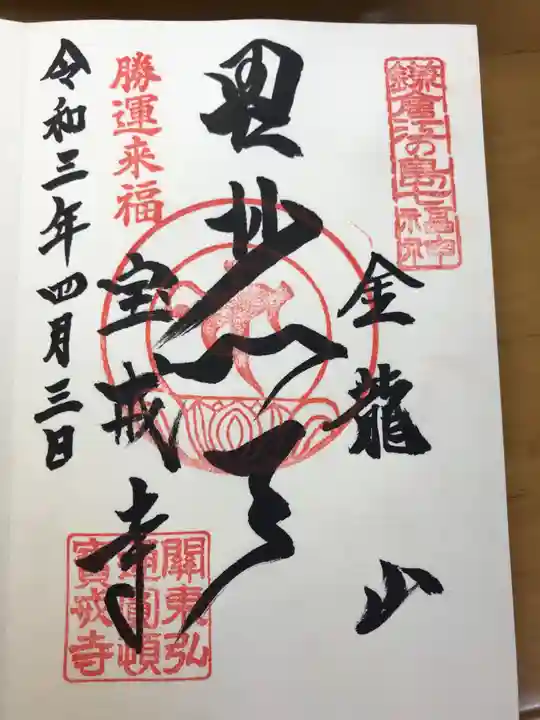 鎌倉江の島七福神
金龍山
毘沙門天
勝運来福
宝戒寺
令和三年四月三日
關東弘
通圓頓
寶戒寺